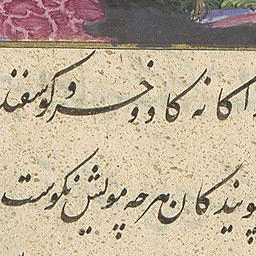 ا کانه کاو و خر و کوسفند
پویند کان هرچه مویش نکوست